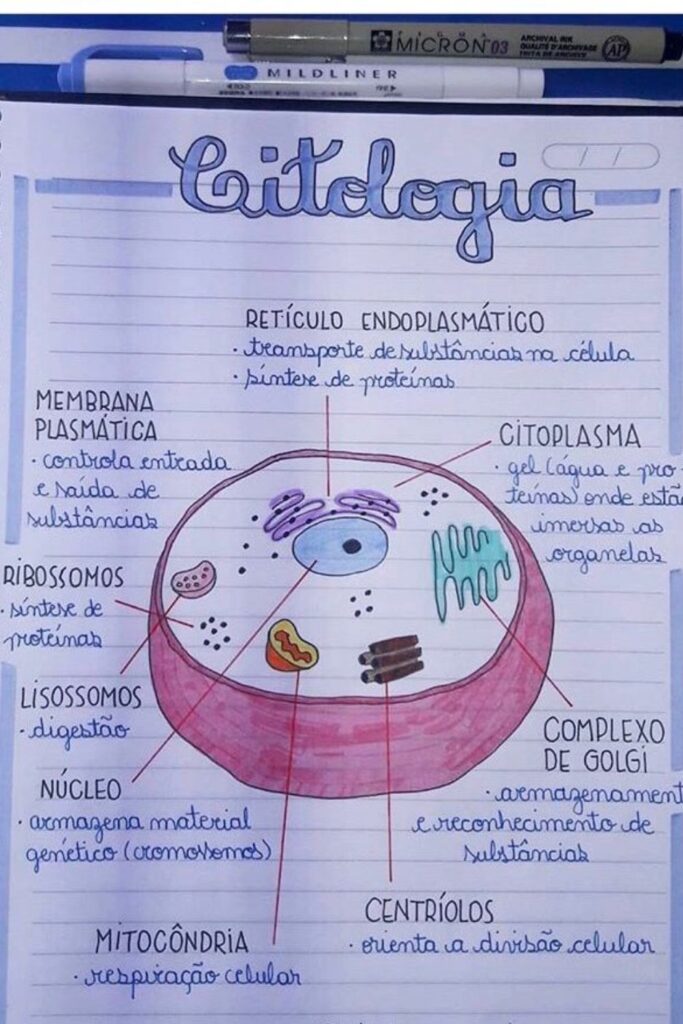 MICRON 03
ARCHIVAL INK
QUALITÉ D'ARCHIVAGE
TINTA DE ARCHIVE
AP
MILDLINER
Citologia
RETÍCULO ENDOPLASMÁTICO
· transporte de substâncias na célula
· síntese de proteínas
MEMBRANA
PLASMÁTICA
· controla entrada
e saída de
substâncias
CITOPLASMA
· gel (água e pro-
teínas) onde estã
imersas as
organelas
RIBOSSOMOS
· síntese de
proteínas
LISOSSOMOS
· digestão
NÚCLEO
· armazena material
genético (cromossomos)
COMPLEXO
DE GOLGI
· armazenament
e reconhecimento de
substâncias
CENTRÍOLOS
· orienta a divisão celular
MITOCÔNDRIA
· respiração celular